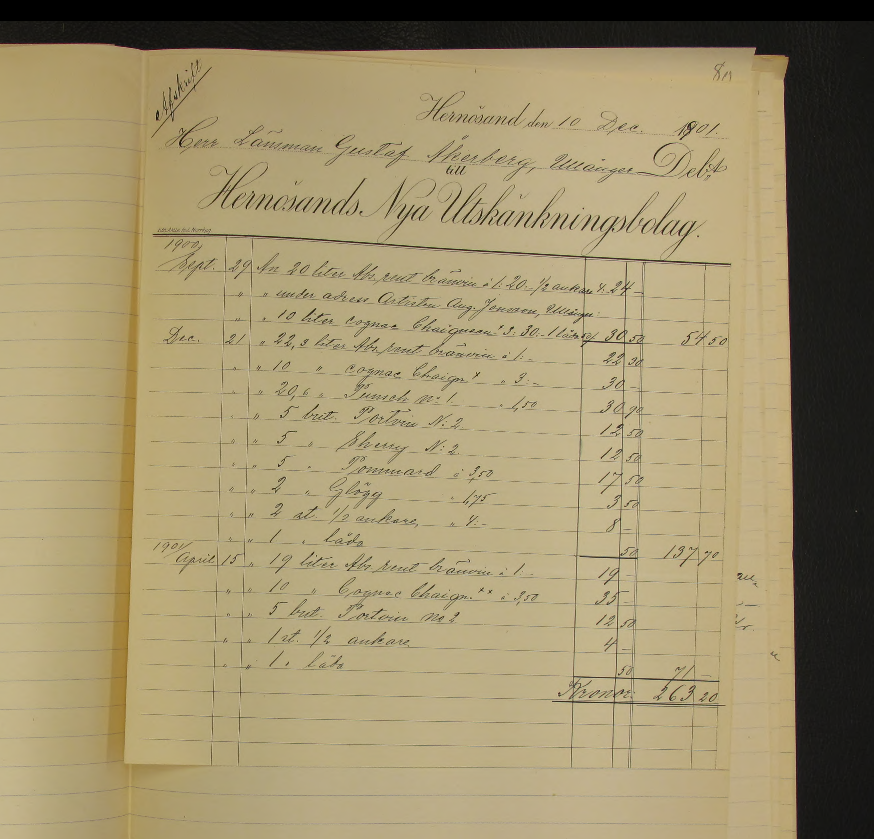 Afskrift
Hernösand den 10 Dec. 1901.
Herr Länsman Gustaf Åkerberg, Ullånger Debt
till
Hernösands Nya Utskänkningsbolag.
1900
Sept. 29 An 20 liter Abs. rent bränvin à 1.20 - 1/2 ankare 4: 24 -
" " under adress Artisten Aug. Jonsson, Ullånger
" " 10 liter cognac Chaigneau* 3: 30.- 1 låda 50/ 30 50 54 50
Dec. 21 " 22,3 liter Abs. rent bränvin à 1:- 22 30
" " 10 " cognac Chaign* " 3:- 30 -
" " 20,6 " Punsch No 1. " 1,50 30 90
" " 5 but. Portvin N: 2 12 50
" " 5 " Sherry N: 2 12 50
" " 5 " Pommard à 3,50 17 50
" " 2 " Glögg " 1,75 3 50
" " 2 st. 1/2 ankare, " 4:- 8 -
" " 1 " låda 50 137 70
1901
April 15 " 19 liter Abs. rent bränvin à 1:- 19 -
" " 10 " Cognac Chaign.** à 3,50 35 -
" " 5 but. Portvin No 2 12 50
" " 1 st. 1/2 ankare 4 -
" " 1 " låda 50 71 -
Kronor: 263 20